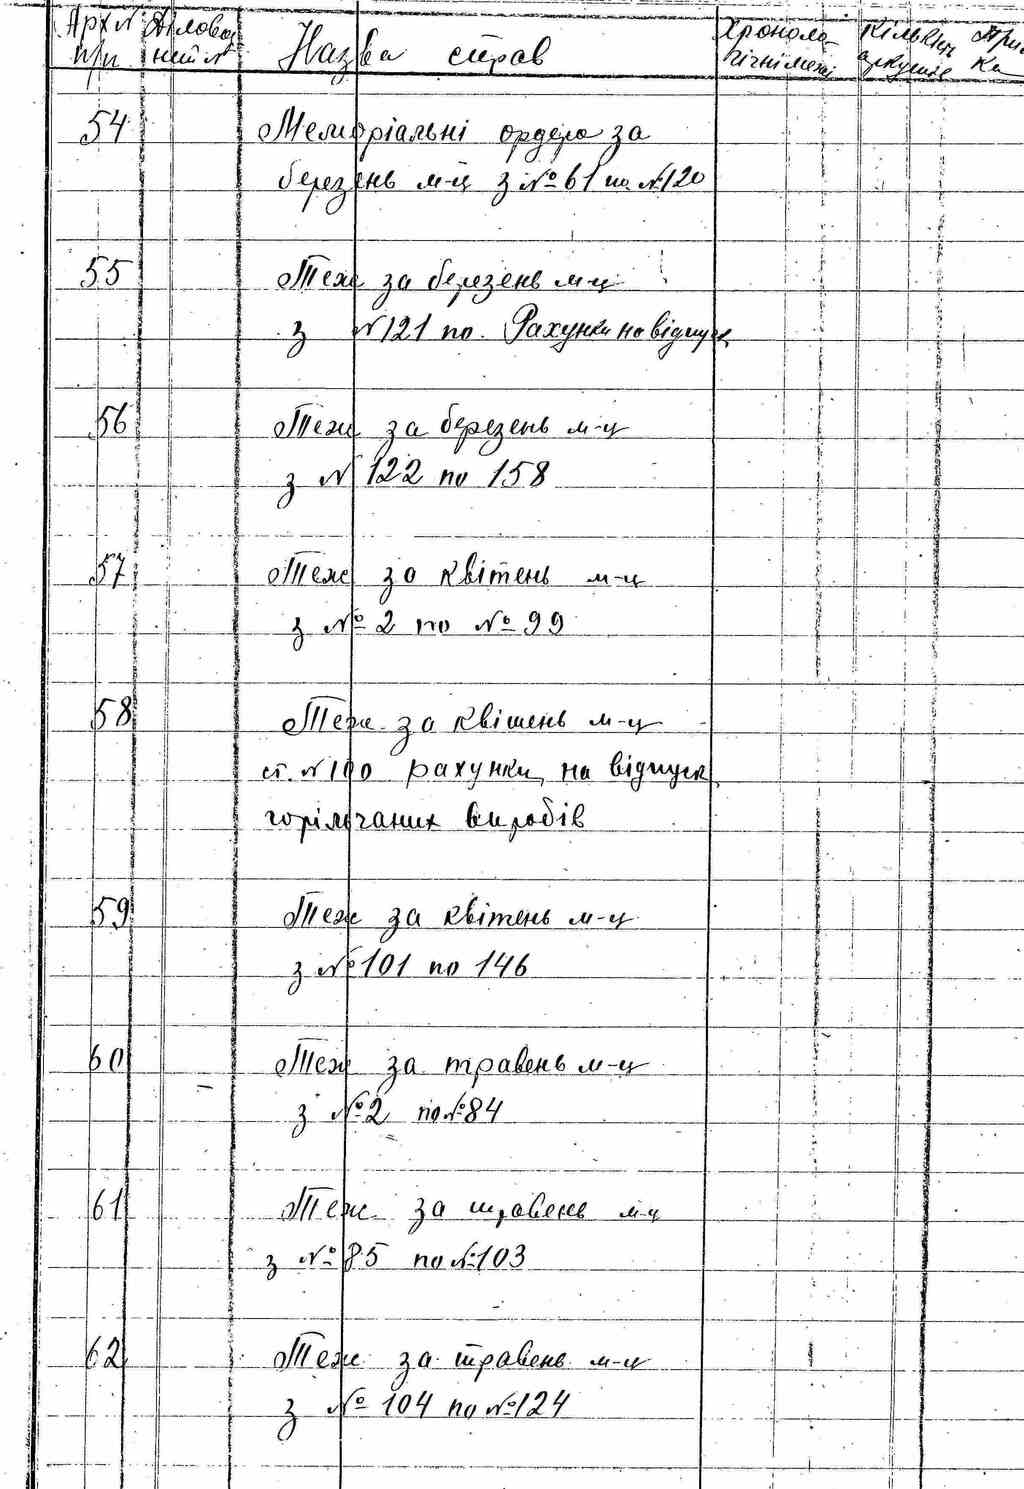 Арх№ п/п Діловод ний № Назва справ Хроноло- гічні межі Кількість аркушів При- ка
54 Меморіальні ордера за
березень м-ц з №61 по №120
55 Теж за березень м-ц
з №121 по. Рахунки на відпуск
56 Теж за березень м-ц
з № 122 по 158
57 Теж за квітень м-ц
з № 2 по № 99
58 Теж за квітень м-ц
ст. №100 рахунки на відпуск
горілчаних виробів
59 Теж за квітень м-ц
з №101 по 146
60 Теж за травень м-ц
з №2 по №84
61 Теж за травень м-ц
з №85 по №103
62 Теж за травень м-ц
з №104 по №124